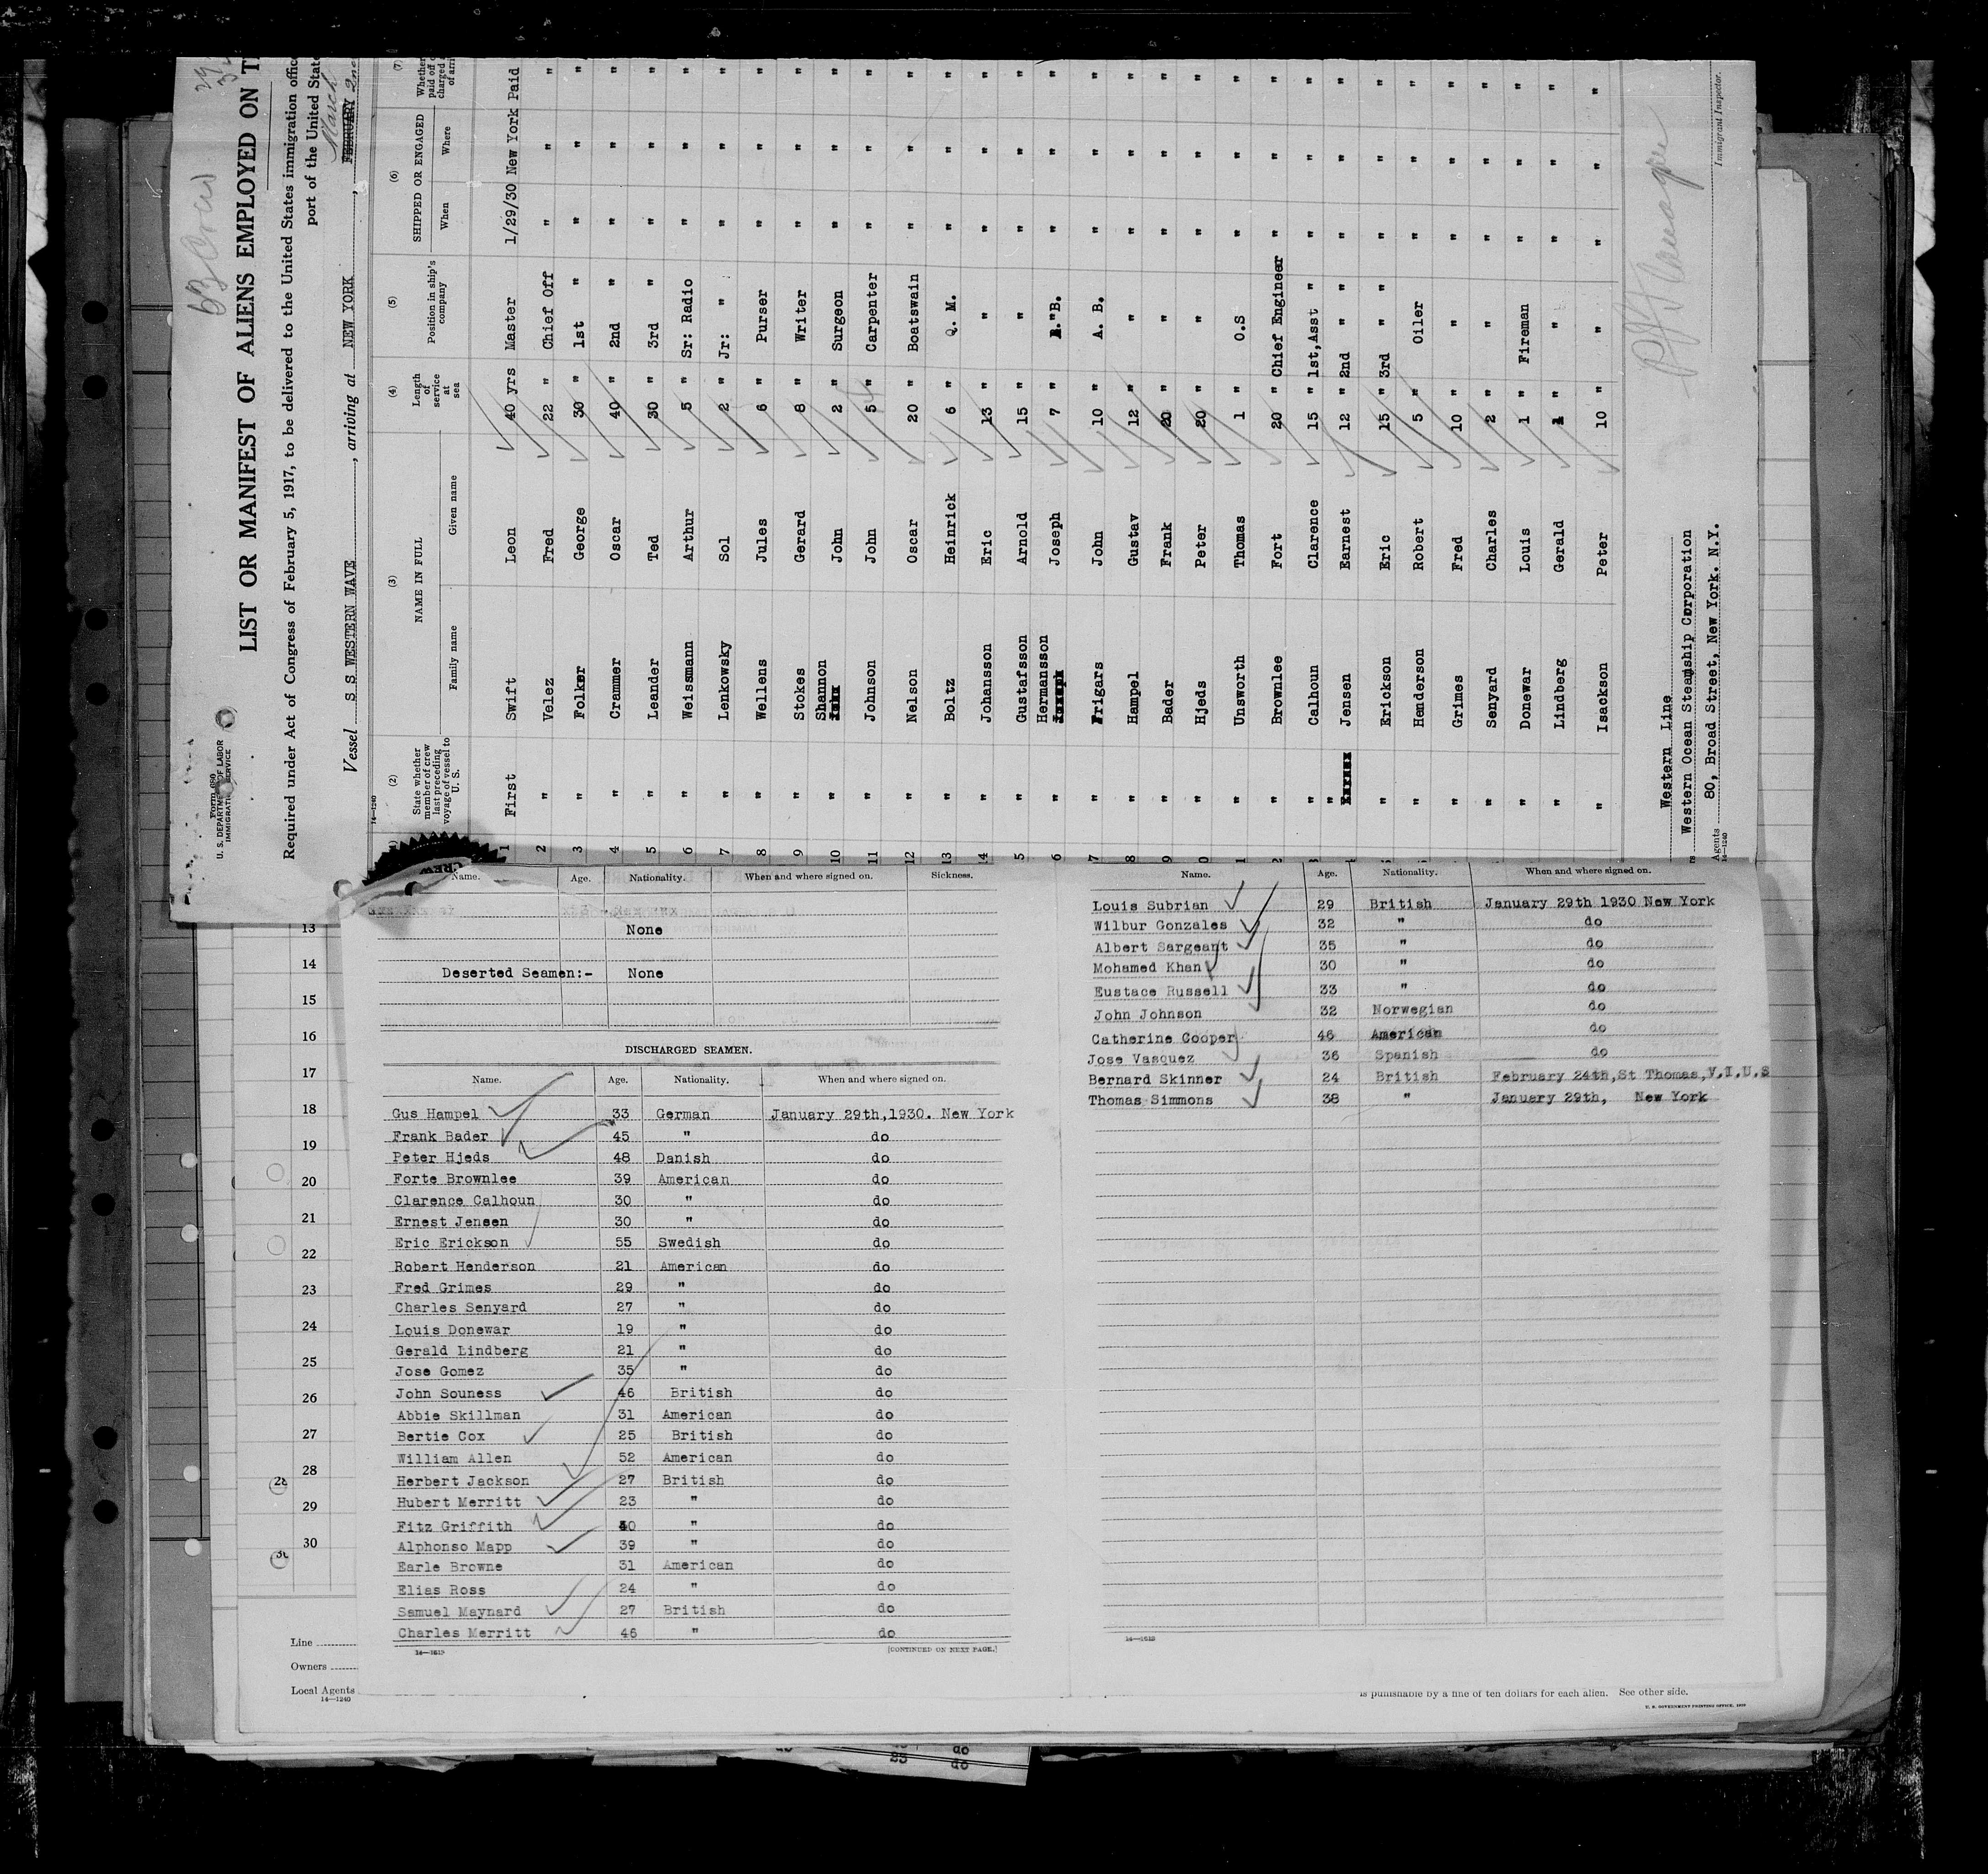 53 Crew
Form 680
U. S. DEPARTMENT OF LABOR
IMMIGRATION SERVICE
LIST OR MANIFEST OF ALIENS EMPLOYED ON T
Required under Act of Congress of February 5, 1917, to be delivered to the United States immigration offic
port of the United State
March
Vessel S S WESTERN WAVE, arriving at NEW YORK, FEBRUARY 2nd
14—1240
(2) (3) (4) (5) (6) (7)
State whether member of crew last preceding voyage of vessel to U. S. NAME IN FULL Length of service at sea Position in ship's company SHIPPED OR ENGAGED Whether paid off
Family name Given name When Where
1 First Swift Leon 40 yrs Master 1/29/30 New York Paid
2 " Velez Fred 22 " Chief Off " " "
3 " Folker George 30 " 1st " " " "
4 " Crammer Oscar 40 " 2nd " " " "
5 " Leander Ted 30 " 3rd " " " "
6 " Weissmann Arthur 5 " Sr: Radio " " "
7 " Lenkowsky Sol 2 " Jr: " " " "
8 " Wellens Jules 6 " Purser " " "
9 " Stokes Gerard 8 " Writer " " "
10 " Shannon John 2 " Surgeon " " "
11 " Johnson John 5 " Carpenter " " "
12 " Nelson Oscar 20 " Boatswain " " "
13 " Boltz Heinrick 6 " Q. M. " " "
14 " Johansson Eric 13 " " " " "
5 " Gustafsson Arnold 15 " " " " "
6 " Hermansson Joseph 7 " B. " " "
7 " Frigars John 10 " A. B. " " "
8 " Hampel Gustav 12 " " " " "
9 " Bader Frank 20 " " " " "
0 " Hjeds Peter 20 " " " " "
1 " Unsworth Thomas 1 " O.S " " "
2 " Brownlee Fort 20 " Chief Engineer " " "
3 " Calhoun Clarence 15 " 1st,Asst " " " "
" Jensen Earnest 12 " 2nd " " " " "
" Erickson Eric 15 " 3rd " " " " "
" Henderson Robert 5 " Oiler " " "
" Grimes Fred 10 " " " " "
" Senyard Charles 2 " " " " "
" Donewar Louis 1 " Fireman " " "
" Lindberg Gerald 1 " " " " "
" Isackson Peter 10 " " " " "
Western Line
Western Ocean Steamship Corporation
Agents 80, Broad Street, New York. N.Y.
14—1240
Immigrant Inspector.
CREW
Name. Age. Nationality. When and where signed on. Sickness.
None
Deserted Seamen:- None
DISCHARGED SEAMEN.
Name. Age. Nationality. When and where signed on.
Gus Hampel 33 German January 29th,1930. New York
Frank Bader 45 " do
Peter Hjeds 48 Danish do
Forte Brownlee 39 American do
Clarence Calhoun 30 " do
Ernest Jensen 30 " do
Eric Erickson 55 Swedish do
Robert Henderson 21 American do
Fred Grimes 29 " do
Charles Senyard 27 " do
Louis Donewar 19 " do
Gerald Lindberg 21 " do
Jose Gomez 35 " do
John Souness 46 British do
Abbie Skillman 31 American do
Bertie Cox 25 British do
William Allen 52 American do
Herbert Jackson 27 British do
Hubert Merritt 23 " do
Fitz Griffith 40 " do
Alphonso Mapp 39 " do
Earle Browne 31 American do
Elias Ross 24 " do
Samuel Maynard 27 British do
Charles Merritt 46 " do
14—1615 [CONTINUED ON NEXT PAGE.]
Name. Age. Nationality. When and where signed on.
Louis Subrian 29 British January 29th 1930 New York
Wilbur Gonzales 32 " do
Albert Sargeant 35 " do
Mohamed Khan 30 " do
Eustace Russell 33 " do
John Johnson 32 Norwegian do
Catherine Cooper 46 American do
Jose Vasquez 36 Spanish do
Bernard Skinner 24 British February 24th,St Thomas,V.I.U.S
Thomas Simmons 38 " January 29th, New York
14—1615
13
14
15
16
17
18
19
20
21
22
23
24
25
26
27
28
29
30
28
Line
Owners
Local Agents
14—1240
is punishable by a fine of ten dollars for each alien. See other side.
U. S. GOVERNMENT PRINTING OFFICE